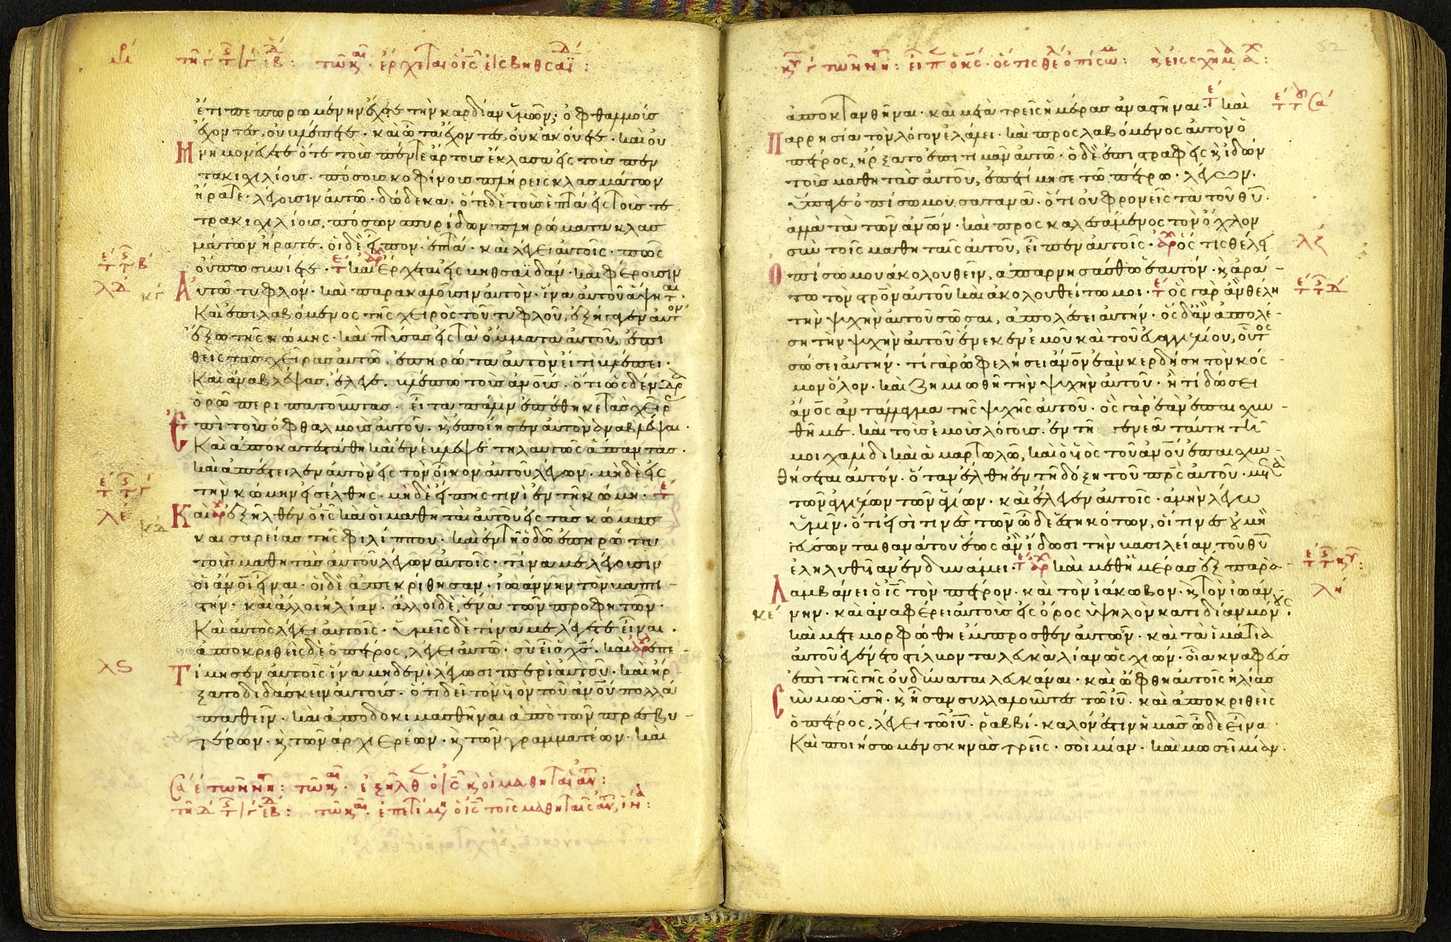 ιβι τῆς γ τ κ ιβ: τῶ κ· ἔρχεται ὁ ις εἰς βηθσαϊ:
ἔτι πεπωρωμένην ἔχετε τὴν καρδίαν ὑμῶν; ὀφθαλμοὺς
ἔχοντες, οὐ βλέπετε· καὶ ὦτα ἔχοντες, οὐκ ἀκούετε· καὶ οὐ
μνημονεύετε ὅτε τοὺς πέντε ἄρτους ἔκλασα εἰς τοὺς πεν
τακισχιλίους· πόσους κοφίνους πλήρεις κλασμάτων
ἤρατε· λέγουσιν αὐτῶ· δώδεκα· ὅτε δὲ τοὺς ἑπτὰ εἰς τοὺς τε
τρακισχιλίους, πόσων σπυρίδων πληρώματα κλασ
μάτων ἤρατε· οἱ δὲ εἶπον· ἑπτά· καὶ λέγει αὐτοῖς· πῶς
οὔπω συνίετε· καὶ ἔρχεται εἰς βηθσαϊδάν· καὶ φέρουσιν
αὐτῶ τυφλόν· καὶ παρακαλοῦσιν αὐτὸν· ἵνα αὐτοῦ ἅψηται·
Καὶ ἐπιλαβόμενος τῆς χειρὸς τοῦ τυφλοῦ, ἐξήγαγεν αὐτὸν
ἔξω τῆς κώμης· καὶ πτύσας εἰς τὰ ὄμματα αὐτοῦ, ἐπι
θεὶς τὰς χεῖρας αὐτῶ, ἐπηρώτα αὐτὸν εἴ τι βλέπει·
Καὶ ἀναβλέψας, ἔλεγε· βλέπω τοὺς ἀνους· ὅτι ὡς δένδρα
ὁρῶ περιπατοῦντας· εἶτα πάλιν ἐπέθηκε τὰς χεῖρας
ἐπὶ τοὺς ὀφθαλμοὺς αὐτοῦ· κ ἐποίησεν αὐτὸν ἀναβλέψαι·
Καὶ ἀποκατεστάθη καὶ ἐνέβλεψε τηλαυγῶς ἅπαντας·
καὶ ἀπέστειλεν αὐτὸν εἰς τὸν οἶκον αὐτοῦ λέγων· μηδὲ εἰς
τὴν κώμην εἰσέλθης· μηδὲ εἴπης τινὶ ἐν τῆ κώμη·
Καὶ ἐξῆλθεν ὁ ις καὶ οἱ μαθηταὶ αὐτοῦ εἰς τὰς κώμας
καισαρείας τῆς φιλίππου· καὶ ἐν τῆ ὁδῶ ἐπηρώτα
τοὺς μαθητὰς αὐτοῦ λέγων αὐτοῖς· τίνα με λέγουσιν
οἱ ἀνοι εἶναι· οἱ δὲ ἀπεκρίθησαν· ἰωάννην τὸν βαπτι
στήν· καὶ ἄλλοι ἠλίαν· ἄλλοι δὲ, ἕνα τῶν προφητῶν·
Καὶ αὐτὸς λέγει αὐτοῖς· ὑμεῖς δὲ τίνα με λέγετε εἶναι·
ἀποκριθεὶς δὲ ὁ πέτρος, λέγει αὐτῶ· σὺ εἶ ὁ χς· καὶ ἐπε
τίμησεν αὐτοῖς ἵνα μηδενὶ λέγωσι περὶ αὐτοῦ· καὶ ἤρ
ξατο διδάσκειν αὐτοὺς· ὅτι δεῖ τὸν υἱὸν τοῦ ἀνου πολλὰ
παθεῖν· καὶ ἀποδοκιμασθῆναι ἀπὸ τῶν πρεσβυ
τέρων· κ τῶν ἀρχιερέων· κ τῶν γραμματέων· καὶ
ἐξῆλθ ὁ ις κ οἱ μαθηταὶ αυ:
ἐπετίμ ὁ ις τοῖς μαθηταῖς αυ, ἵνα:
εἶπ ὁ κς· ὅστις θέλ ὀπίσω μ:
ἀποκτανθῆναι· καὶ μετὰ τρεῖς ἡμέρας ἀναστῆναι· καὶ
παρρησία τὸν λόγον ἐλάλει· καὶ προσλαβόμενος αὐτὸν ὁ
πέτρος, ἤρξατο ἐπιτιμᾶν αὐτῶ· ὁ δὲ ἐπιστραφεὶς κ ἰδὼν
τοὺς μαθητὰς αὐτοῦ, ἐπετίμησε τῶ πέτρω· λέγων·
ὕπαγε ὀπίσω μου σατανᾶ· ὅτι οὐ φρονεῖς τὰ τοῦ θυ·
ἀλλὰ τὰ τῶν ἀνων· καὶ προσκαλεσάμενος τὸν ὄχλον
σὺν τοῖς μαθηταῖς αὐτοῦ, εἶπεν αὐτοῖς· ὅστις θέλει
ὀπίσω μου ἀκολουθεῖν, ἀπαρνησάσθω ἑαυτόν· κ ἀρά
τω τὸν σταυρὸν αὐτοῦ καὶ ἀκολουθείτω μοι· ὃς γὰρ ἂν θέλη
τὴν ψυχὴν αὐτοῦ σῶσαι, ἀπολέσει αὐτήν· ὃς δ' ἂν ἀπολέ
ση τὴν ψυχὴν αὐτοῦ ἕνεκεν ἐμοῦ καὶ τοῦ εὐαγγελίου, οὗτος
σώσει αὐτήν· τί γὰρ ὠφελήσει ἀνον ἐὰν κερδήση τὸν κόσ
μον ὅλον· καὶ ζημιωθῆ τὴν ψυχὴν αὐτοῦ· ἢ τί δώσει
ἀνος ἀντάλλαγμα τῆς ψυχῆς αὐτοῦ· ὃς γὰρ ἐὰν ἐπαισχυν
θῆ με· καὶ τοὺς ἐμοὺς λόγους· ἐν τῆ γενεᾶ ταύτη τῆ
μοιχαλίδι καὶ ἁμαρτωλῶ, καὶ ὁ υἱὸς τοῦ ἀνου ἐπαισχυν
θήσεται αὐτόν· ὅταν ἔλθη ἐν τῆ δόξη τοῦ πρς αὐτοῦ· μετὰ
τῶν ἀγγέλων τῶν ἁγίων· καὶ ἔλεγεν αὐτοῖς· ἀμὴν λέγω
ὑμῖν· ὅτι εἰσί τινες τῶν ὧδε ἑστηκότων, οἵτινες οὐ μὴ
γεύσωνται θανάτου ἕως ἂν ἴδωσι τὴν βασιλείαν τοῦ θυ
ἐληλυθυῖαν ἐν δυνάμει· καὶ μεθ' ἡμέρας ἓξ παρα
λαμβάνει ὁ ις τὸν πέτρον· καὶ τὸν ἰάκωβον· κ τὸν ἰωάν
νην· καὶ ἀναφέρει αὐτοὺς εἰς ὄρος ὑψηλὸν κατιδίαν μόνους·
καὶ μετεμορφώθη ἔμπροσθεν αὐτῶν· καὶ τὰ ἱμάτια
αὐτοῦ ἐγένετο στίλβοντα λευκὰ λίαν ὡς χιών· οἷα γναφεὺς
ἐπὶ τῆς γῆς οὐ δύναται λευκᾶναι· καὶ ὤφθη αὐτοῖς ἠλίας
σὺν μωϋσῆ· κ ἦσαν συλλαλοῦντες τῶ ιυ· καὶ ἀποκριθεὶς
ὁ πέτρος, λέγει τῶ ιυ· ῥαββί· καλόν ἐστιν ἡμᾶς ὧδε εἶναι
Καὶ ποιήσωμεν σκηνὰς τρεῖς· σοὶ μίαν· καὶ μωσεῖ μίαν·